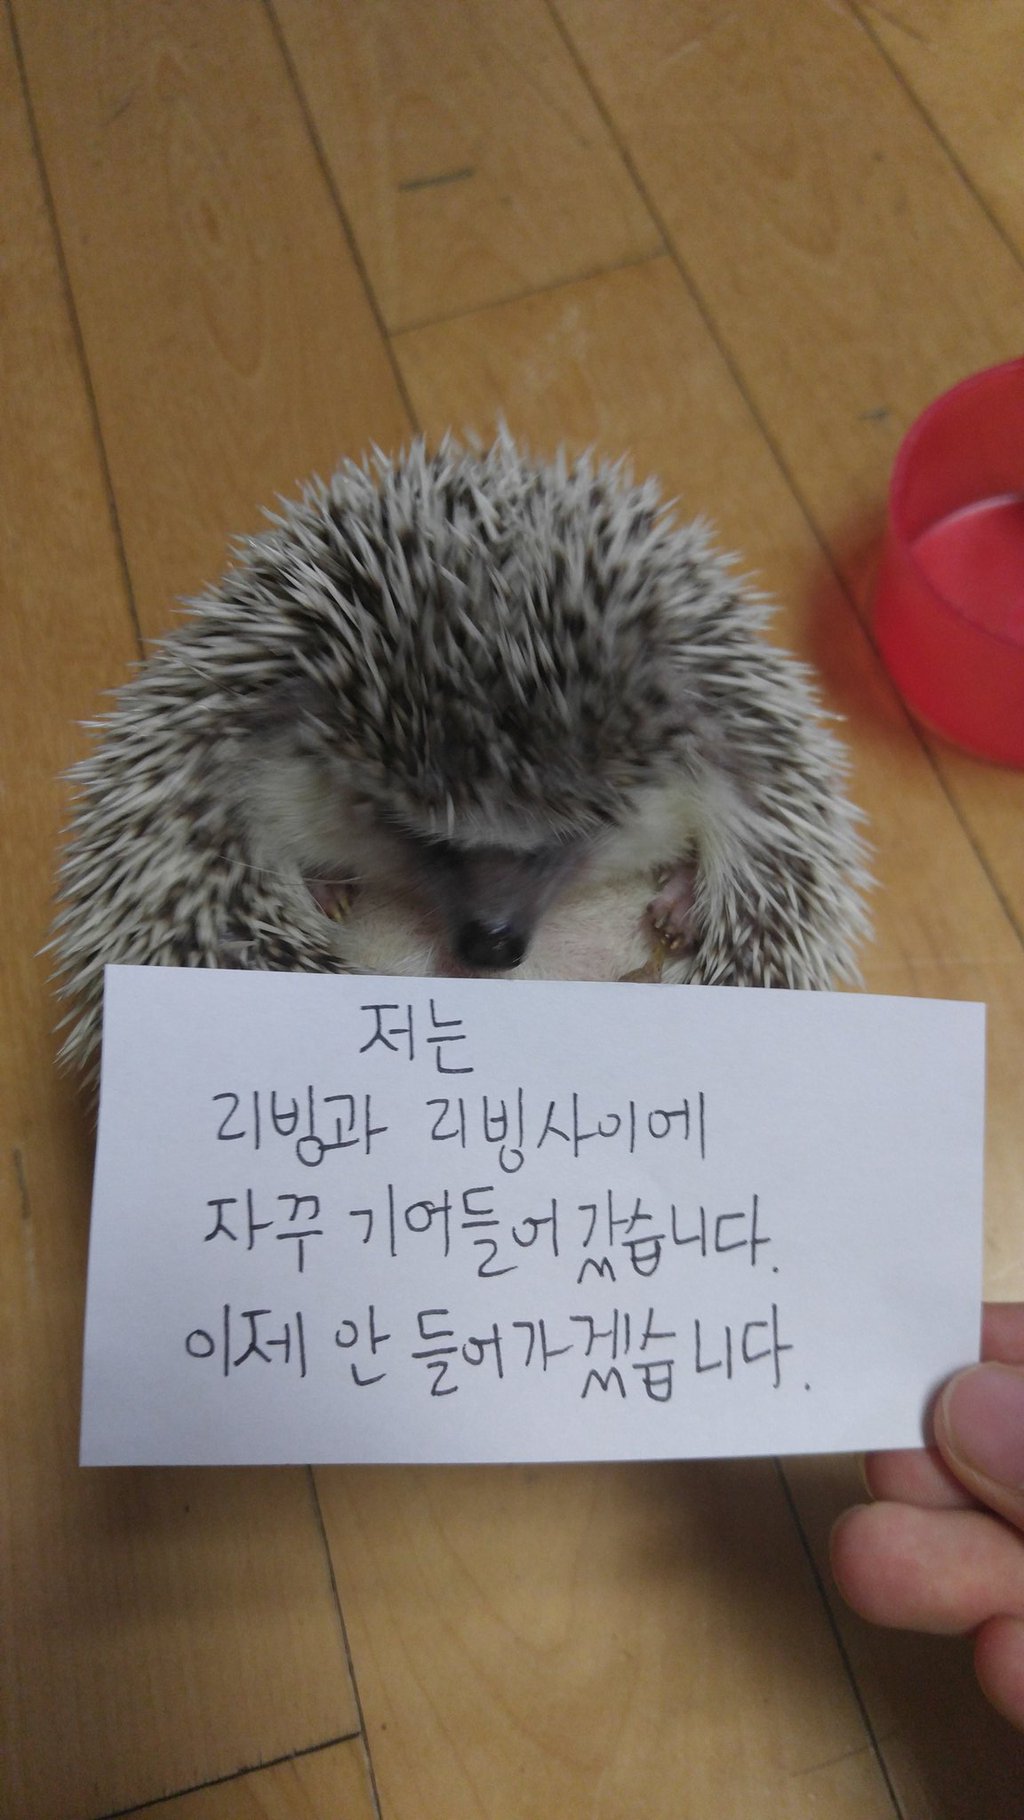 저는
리빙과 리빙사이에
자꾸 기어들어갔습니다.
이제 안 들어가겠습니다.